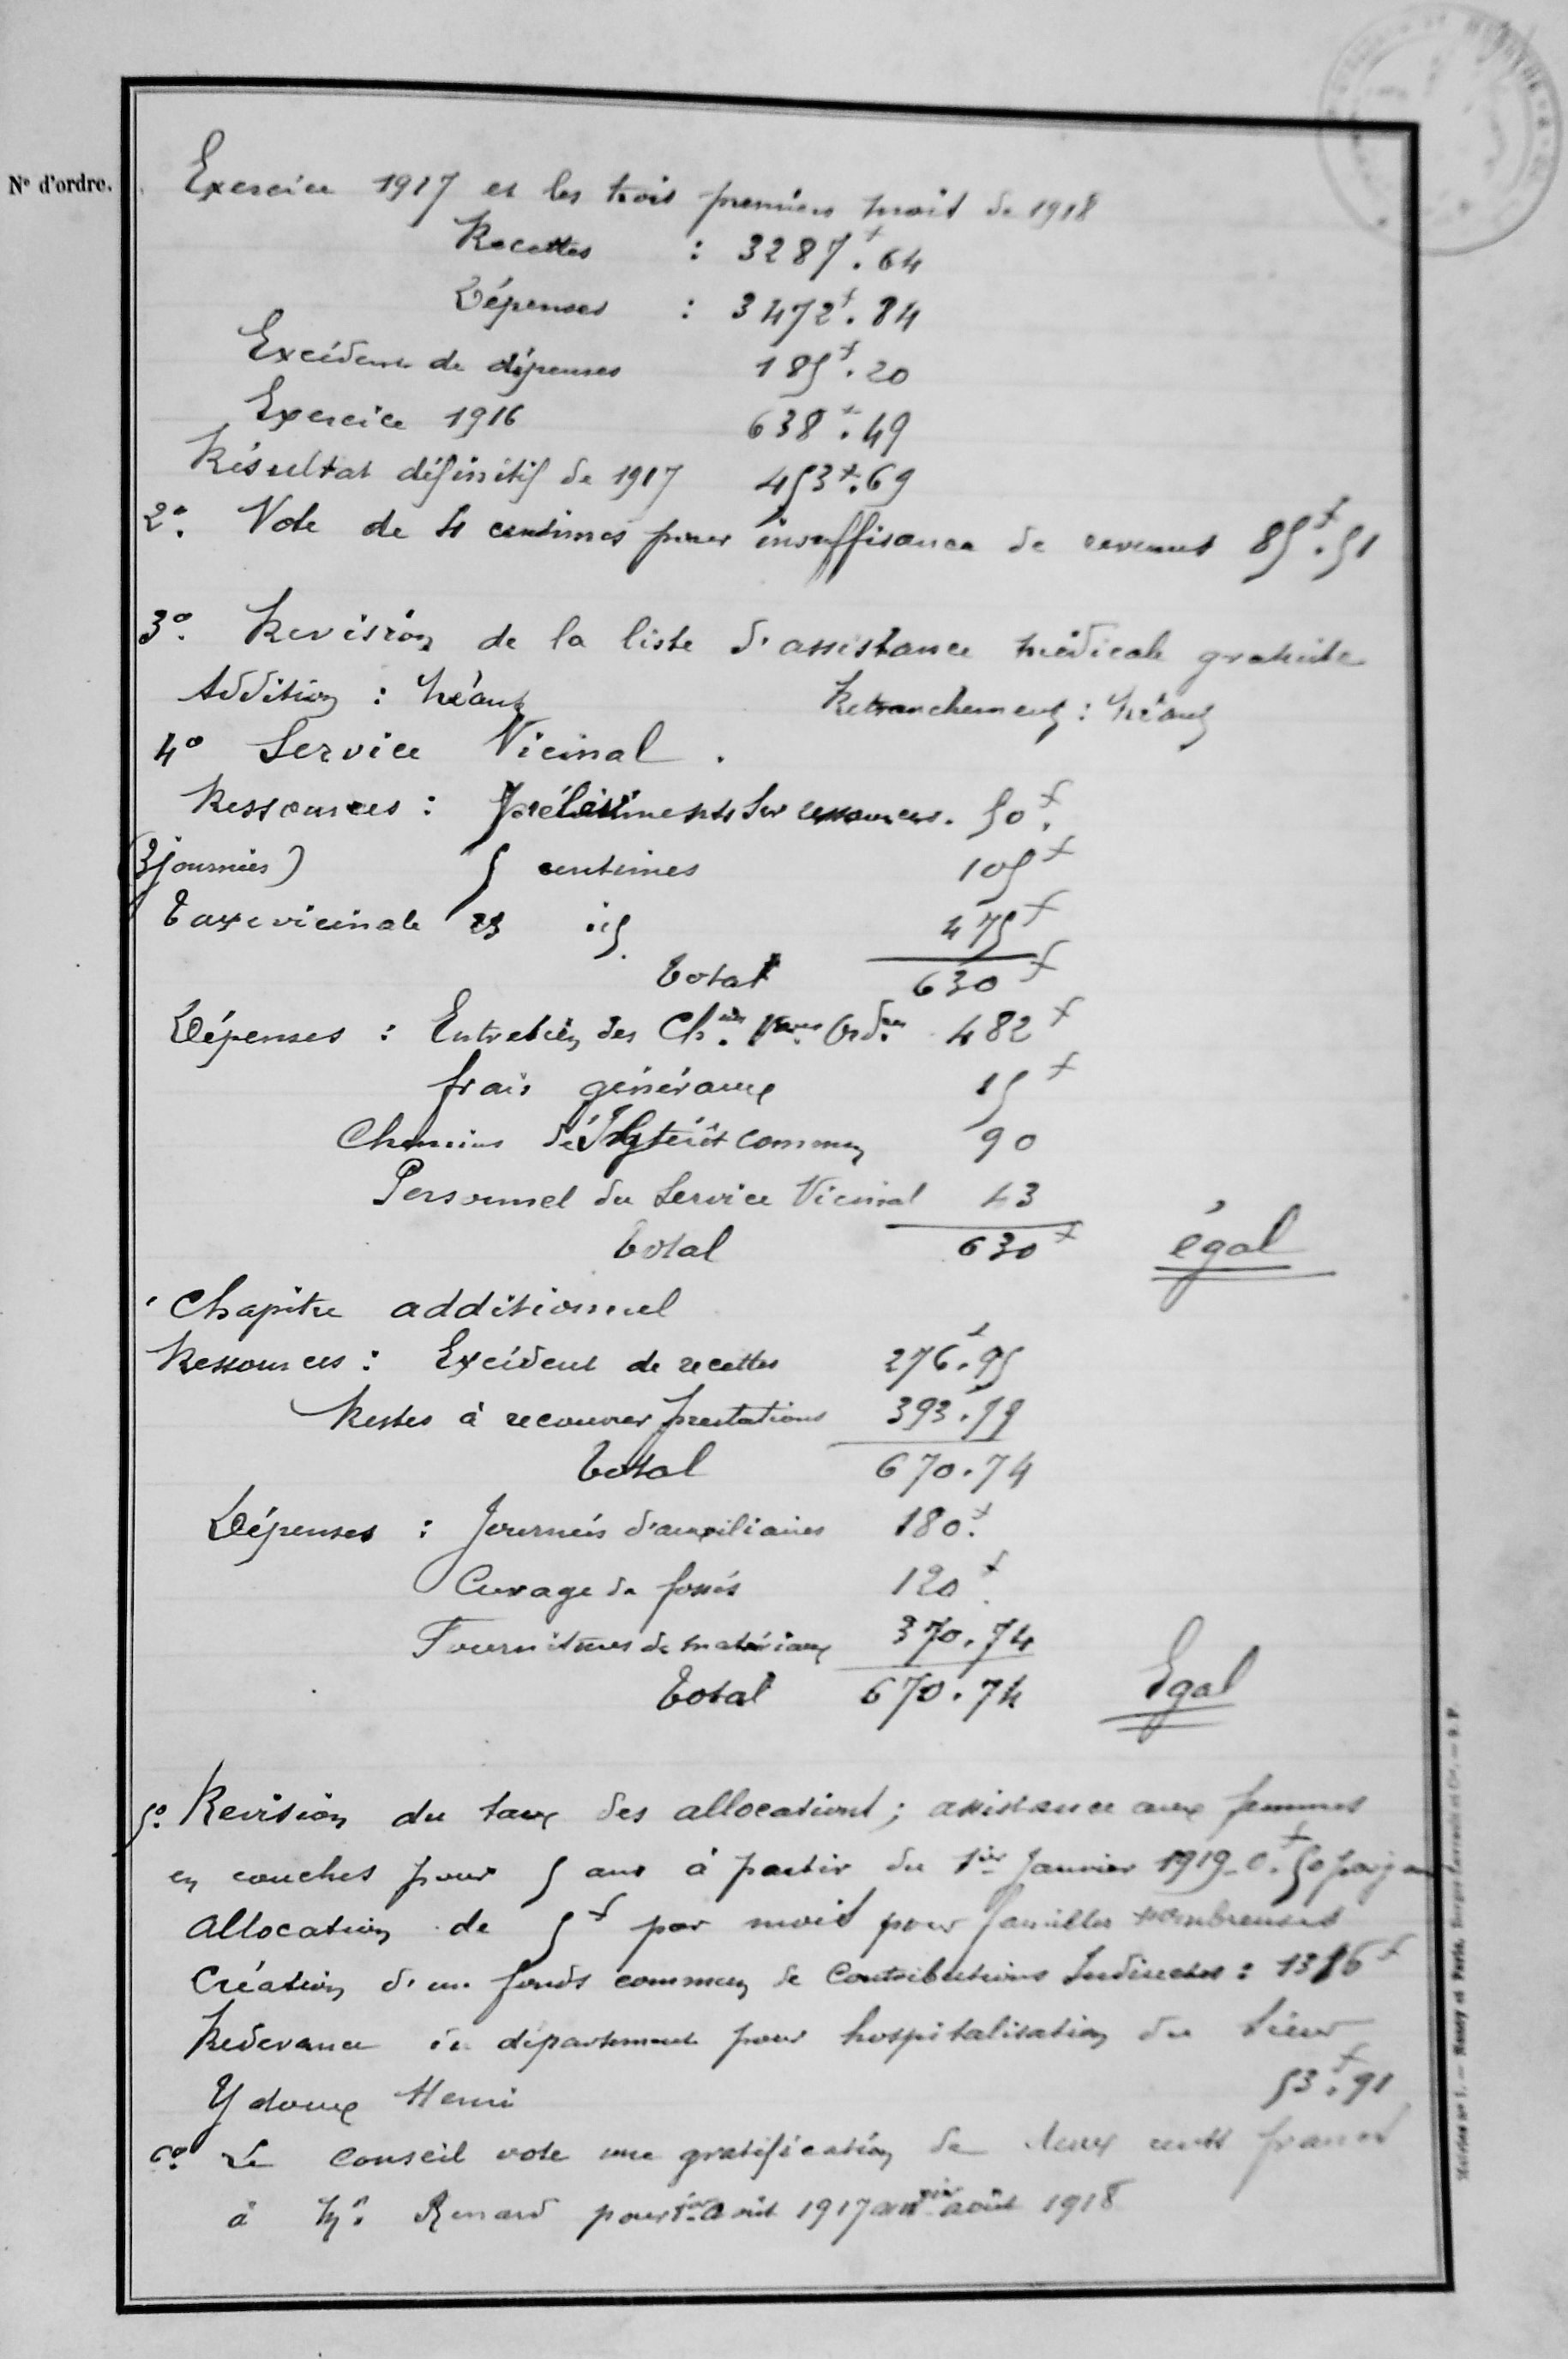 N° d'ordre.
Exercice 1917 et les trois premiers mois de 1918
Recettes : 3287f.64
Dépenses : 3472f.84
Excédent de dépenses 185f.20
Exercice 1916 638f.49
Résultat définitif de 1917 453f.69
2°. Vote de 4 centimes pour insuffisance de revenus 85f.51
3°. Revision de la liste d'assistance médicale gratuite
Addition : néant Retranchement : néant
4° Service Vicinal.
Ressources : Prélèvements sur ressources. 50f.
(3 journées) 5 centimes 105f
Taxe vicinale 23 id 475f
Total 630f
Dépenses : Entretien des Ch.ins V.aux Ord.res 482f
frais généraux 15f
Chemins d'Intérêt commun 90
Personnel du Service Vicinal 43
Total 630f égal
Chapitre additionnel
Ressources : Excédent de recettes 276f.95
Restes à recouvrer prestations 393.79
Total 670.74
Dépenses : Journées d'auxiliaires 180f.
Curage de fossés 120f
Fournitures de matériaux 370.74
Total 670.74 Egal
5° Revision du taux des allocations ; assistance aux femmes
en couches pour 5 ans à partir du 1ier Janvier 1919 - 0f.50 par jour
Allocation de 5f par mois pour familles nombreuses
Création d'un fonds commun de Contributions Indirectes :
Redevance du département pour hospitalisation du sieur
Ydoux Henri 53f.91
6° Le Conseil vote une gratification de deux cents francs
à Mr. Renard pour 1er août 1917 au 1er août 1918